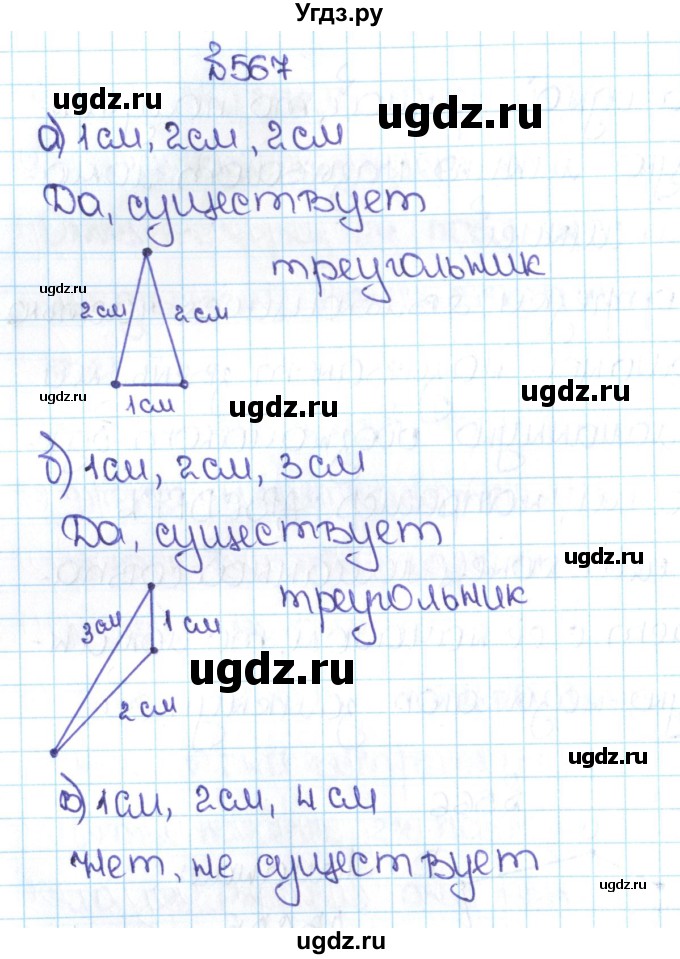 Угдз.ру
№567
ugdz.ru ugdz.ru
а) 1см, 2см, 2см
Да, существует
треугольник
ugdz.ru ugdz.ru
2см 2см
ugdz.ru ugdz.ru ugdz.ru
1см
б) 1см, 2см, 3см
Да, существует
ugdz.ru
треугольник
3см 1см
ugdz.ru
2см
ugdz.ru
в) 1см, 2см, 4см
Нет, не существует
ugdz.ru
ugdz.ru